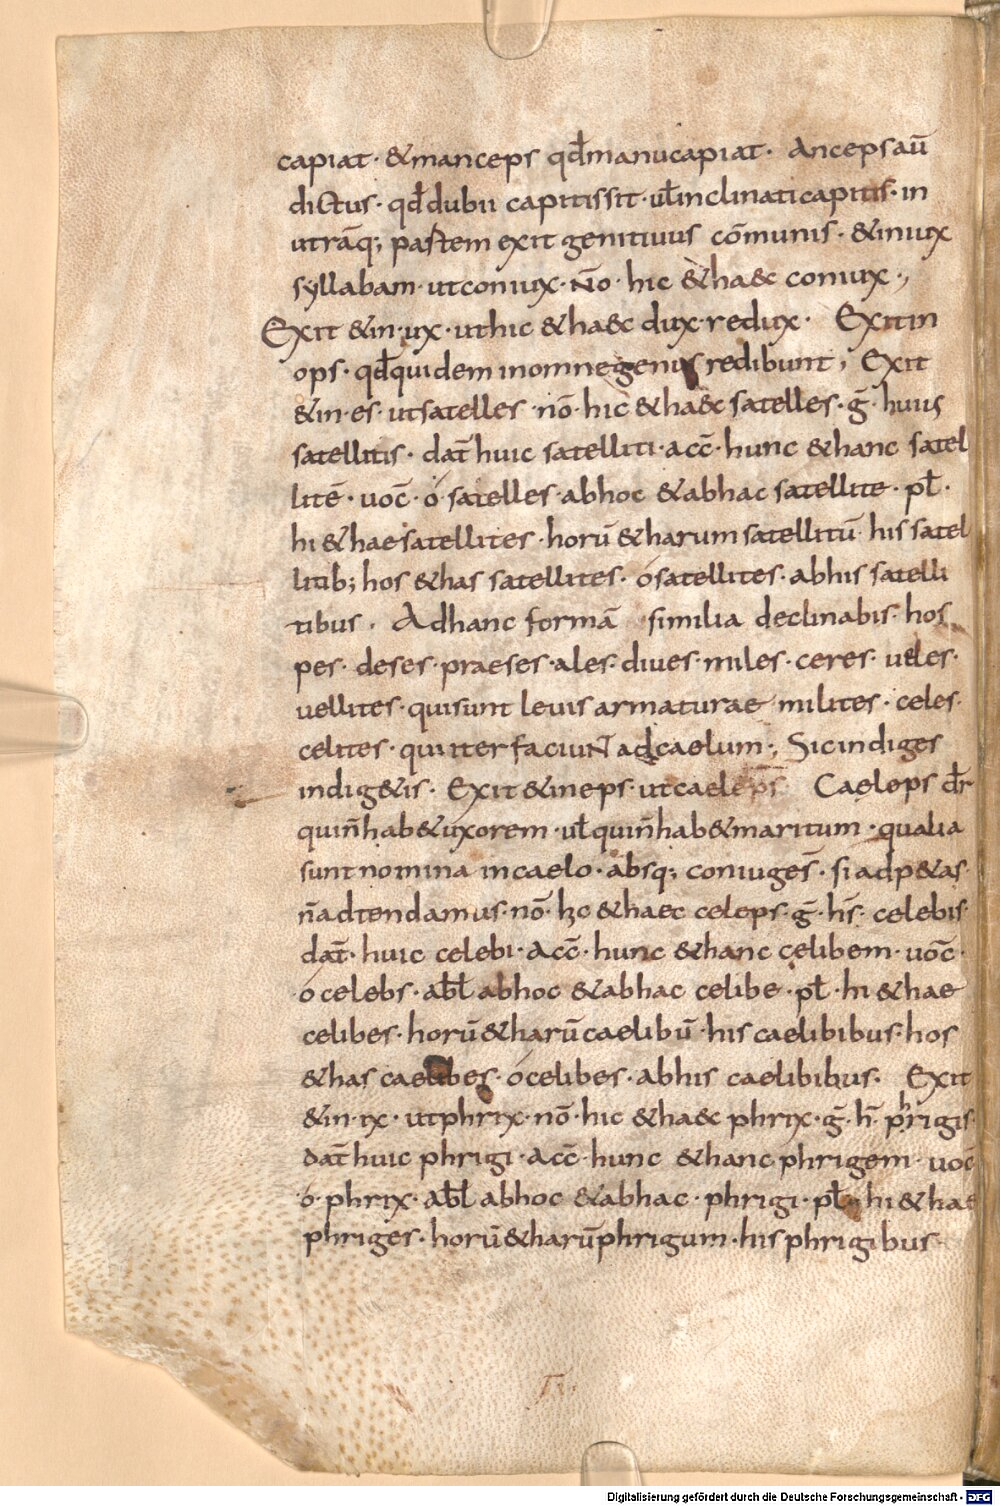 capiat · &manceps qđmanucapiat · Ancepsaū
dictus · qđdubii capitissit · ułinclinaticapitis · in
utrāq; partem exit genitiuus cōmunis · &iniux
syllabam · utconiux · Nō · hic &ha&c coniux ·,
Exit &in · ux · uthic &ha&c dux · redux · Exitin
ops · qđquidem inomnegenus redibunt ; Exit
&in · es · utsatelles · nō · hic &ha&c satelles · ḡ · huius
satellitis · dat̄ huic satelliti · acc̄ · hunc &hanc satel
litē · uoc̄ · ó satelles · abhoc &abhac satellite · pł ·
hi &haesatellites · horū &harum satellitū his satel
litib; hos &has satellites · ósatellites · abhis satelli
tibus · Adhanc formā similia declinabis · hos
pes · deses · praeses · ales · diues · miles · ceres · ueles ·
uellites · quisunt leuis armaturae milites · celes ·
celites · qui iter faciuNT adcaelum ·, Sicindiges
indig&is · Exit &ineps · utcaeleps Caeleps dr̄
quin̄hab&uxorem · uł quin̄hab&maritum · qualia
sunt nomina incaelo · absq; coniuges · si adp&as ·
n̄adtendamus · nō · hc &haec celeps · ḡ · hs̄ · celebis
dat̄ · huic celebi · Acc̄ · hunc &hanc celibem · uoc̄ ·
ó celebs · abł abhoc &abhac celibe · pł · hi &hae
celibes · horū &harū caelibū · his caelibibus · hos
&has caelibes · ócelibes · abhis caelibibus · Exit
&in · ix · utphrix · nō · hic &ha&c phrix · ḡ · h̄ · phrigis
dat̄ huic phrigi · Acc̄ · hunc &hanc phrigem · uoc̄
ó · phrix · abł abhoc &abhac · phrigi · pł · hi &hae
phriges · horū &harū phrigum · his phrigibus ·
Digitalisierung gefördert durch die Deutsche Forschungsgemeinschaft - DFG